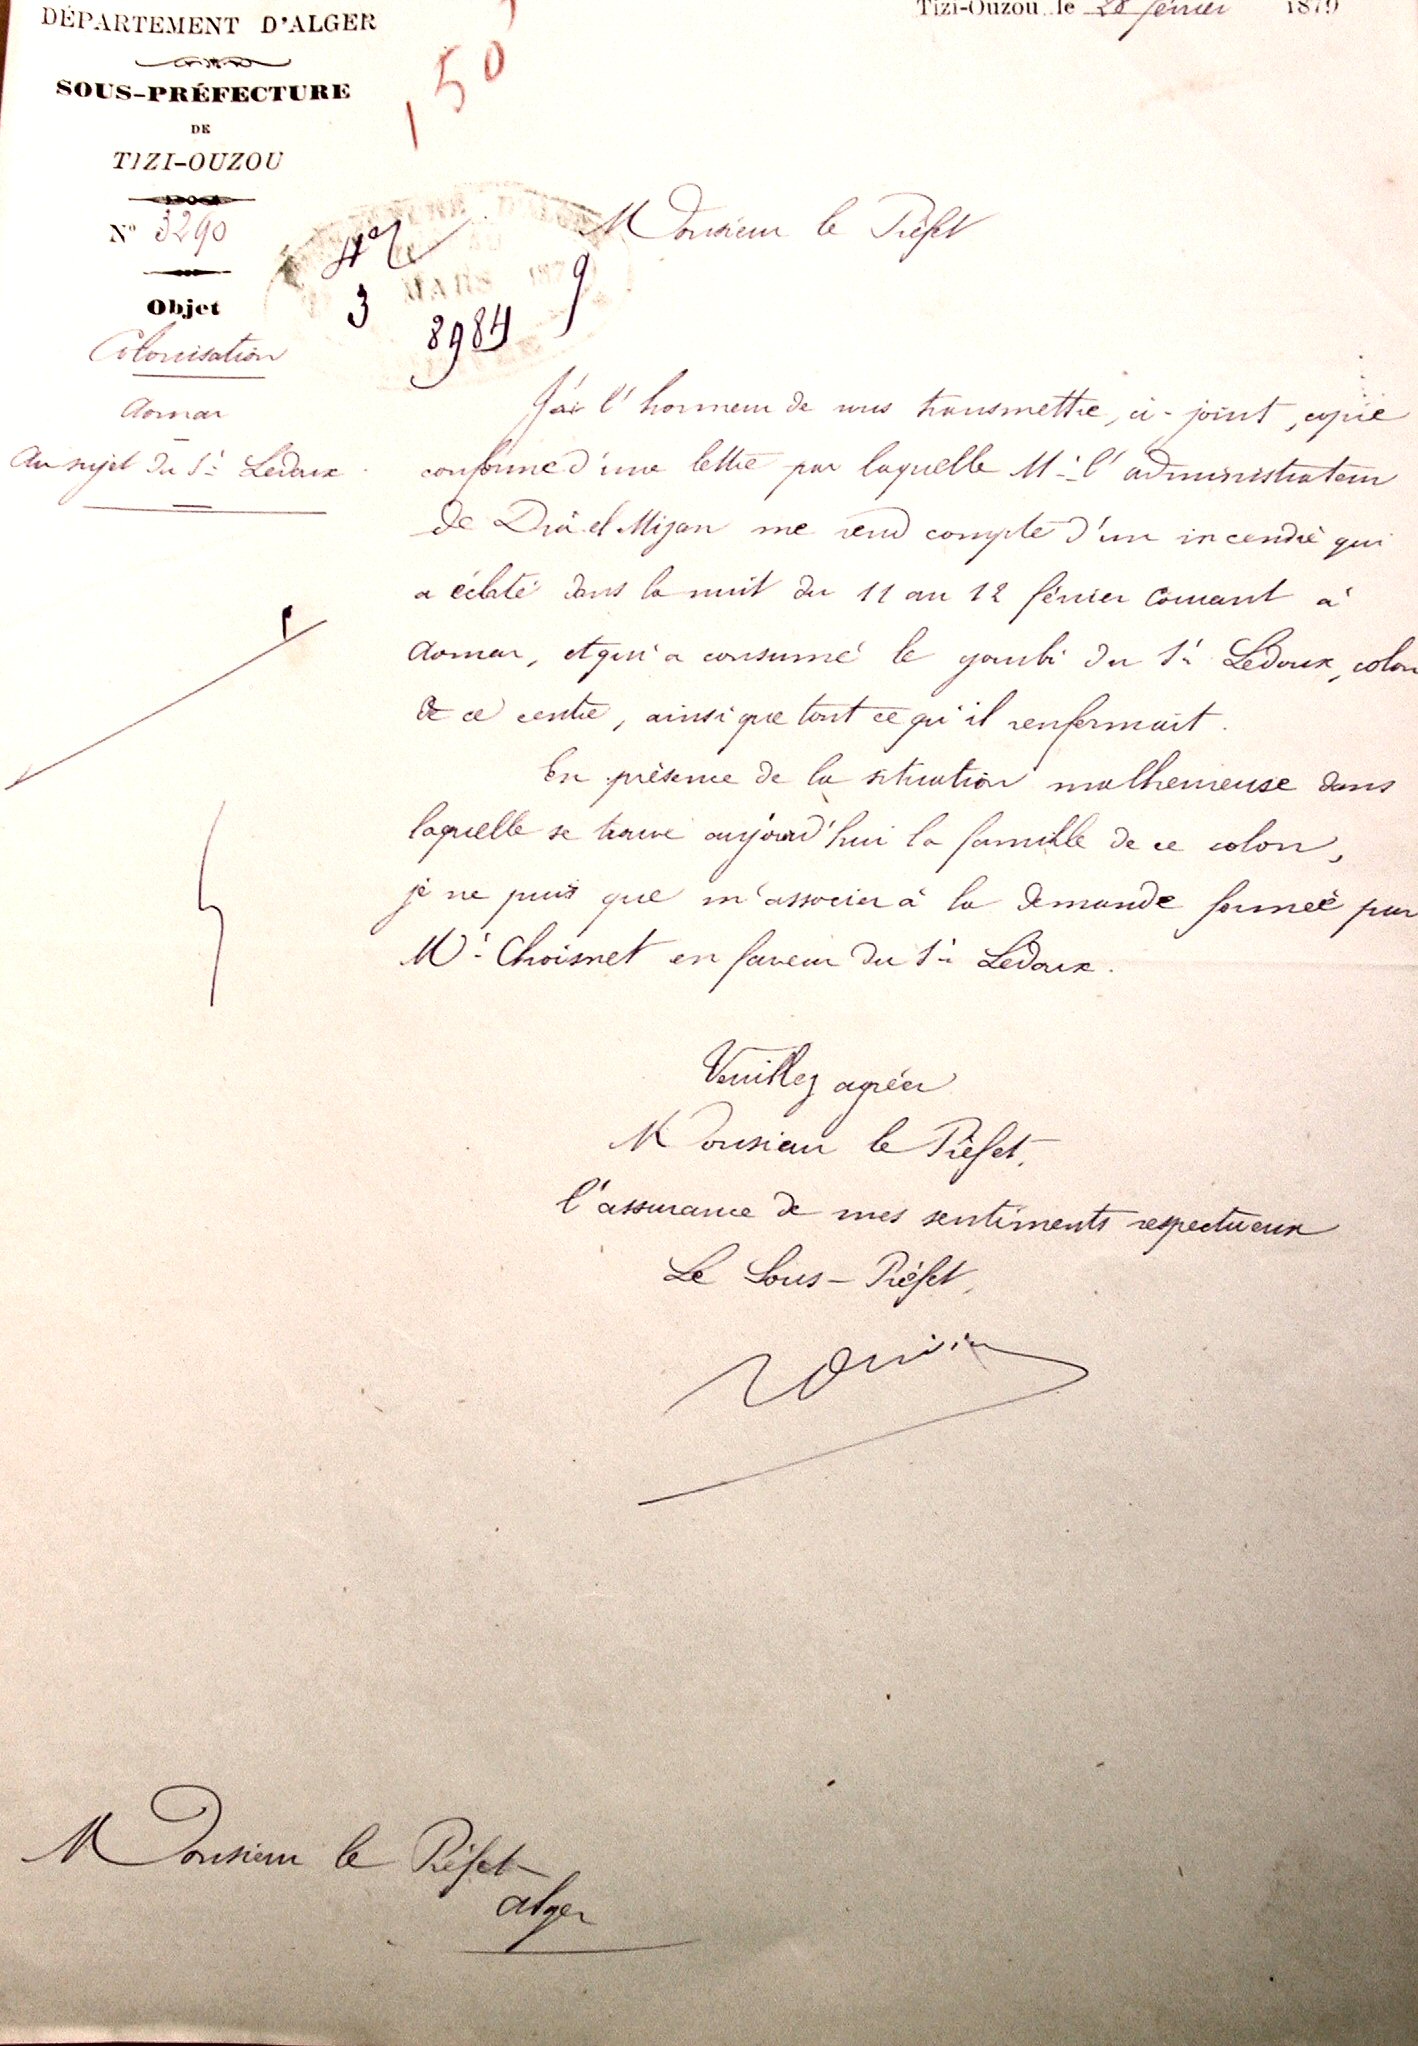 DÉPARTEMENT D'ALGER
SOUS-PRÉFECTURE
DE
TIZI-OUZOU
N° 3290
Objet
Colonisation
Aomar
Au sujet du Sr Ledoux.
Tizi-Ouzou, le 28 février 1879
150
MARS
3
8984
9
Monsieur le Préfet
J'ai l'honneur de vous transmettre, ci-joint, copie
conforme d'une lettre par laquelle Mr l'administrateur
de Drâ el Mizan me rend compte d'un incendie qui
a éclaté dans la nuit du 11 au 12 février courant à
Aomar, et qui a consumé le gourbi du Sr Ledoux, colon
de ce centre, ainsi que tout ce qu'il renfermait.
En présence de la situation malheureuse dans
laquelle se trouve aujourd'hui la famille de ce colon,
je ne puis que m'associer à la demande formée par
Mr Choisnet en faveur du Sr Ledoux.
Veuillez agréer
Monsieur le Préfet,
l'assurance de mes sentiments respectueux
Le Sous-Préfet,
Monsieur le Préfet
Alger